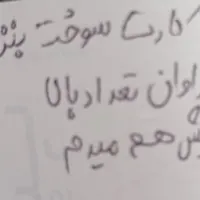 کارت سوخت
اوان تعداد بالا
هم میدم